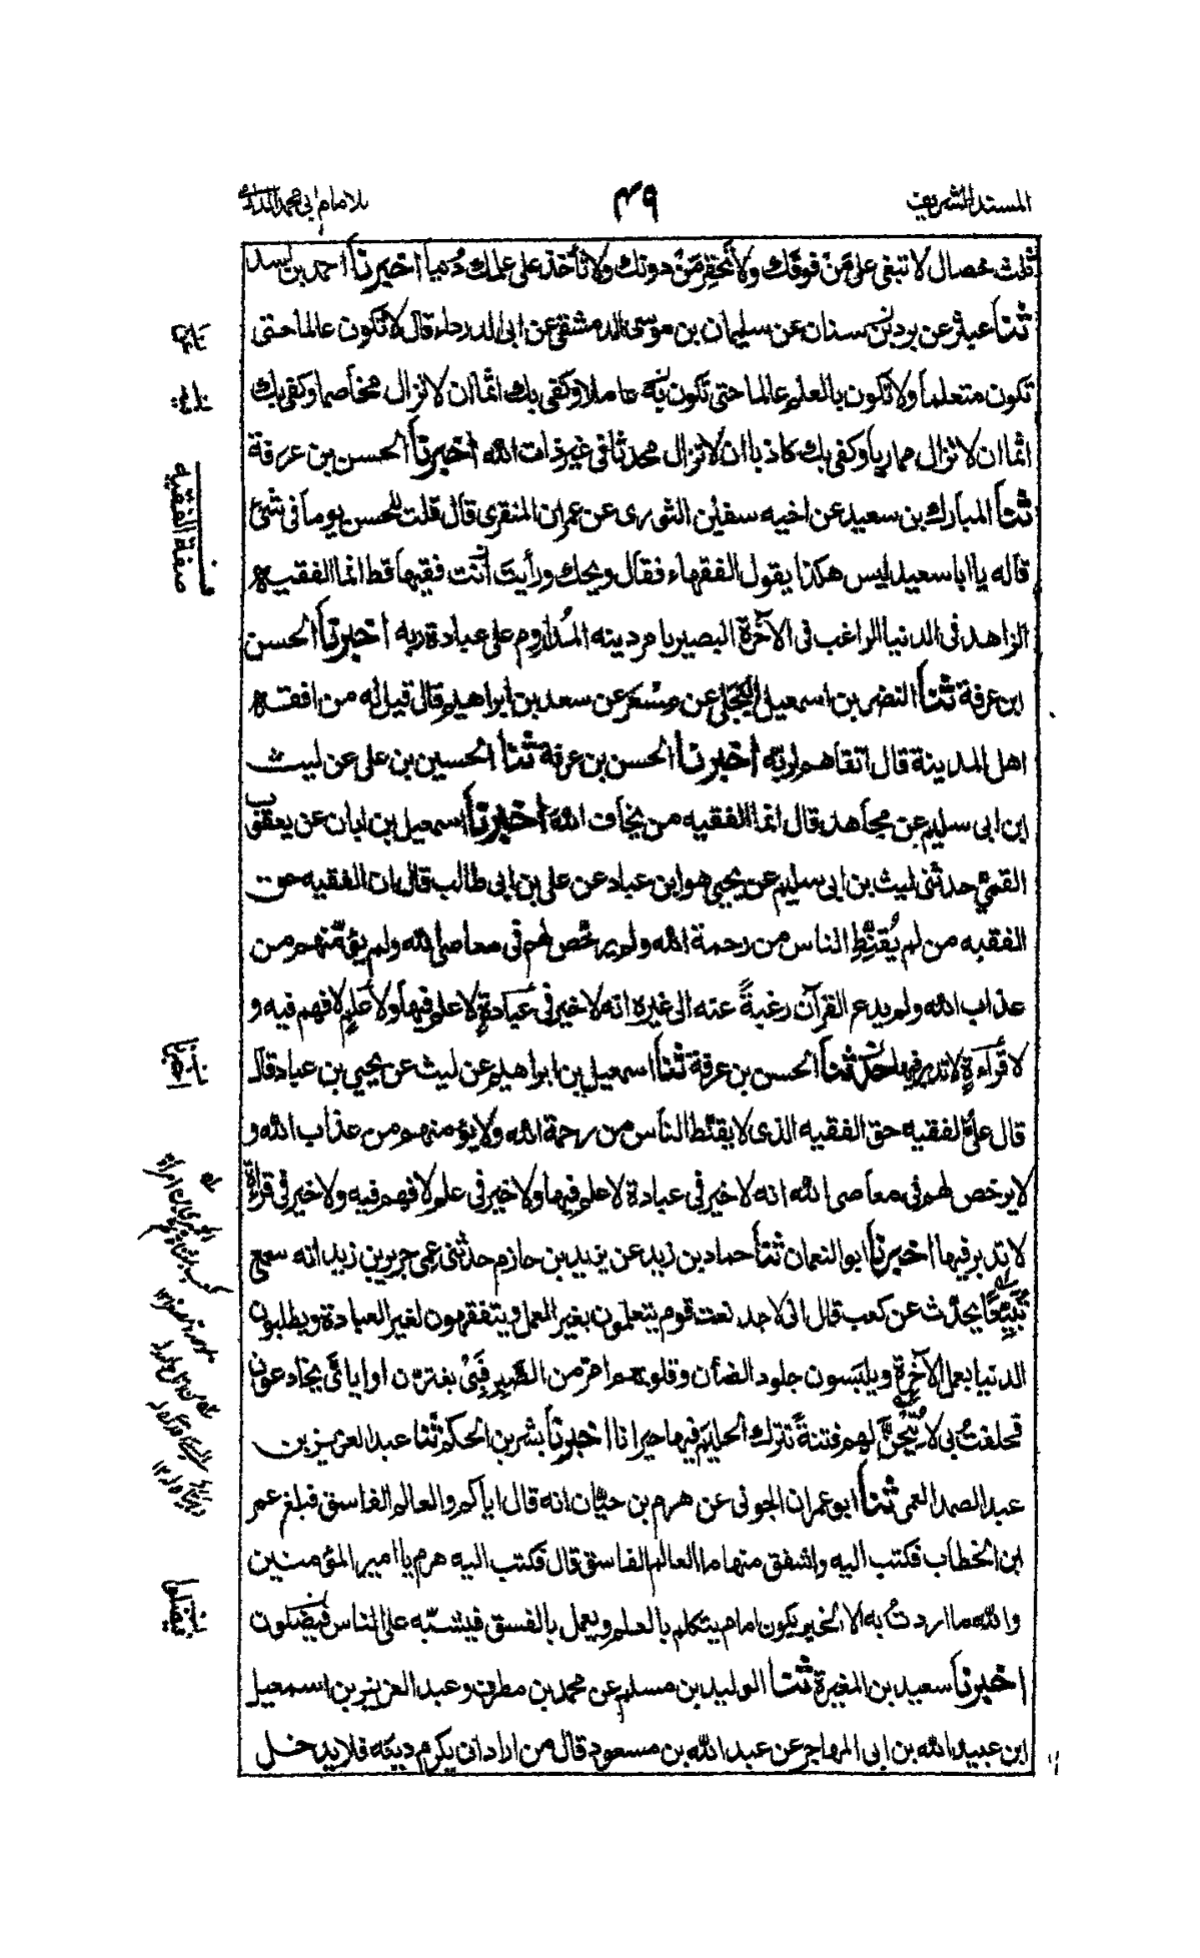 المسند الشريف
٤٩
للامام ابي محمد الدارمي
ثلث خصال لا تبغي على مَنْ فوقك ولا تُحقِر مَنْ دونك ولا تأخذ على علمك دُنيا اخبرنا احمد بن اسد
ثنا عبثر عن برد بن سنان عن سليمان بن موسى الدمشقي عن ابي الدرداء قال لا تكون عالما حتى
تكون متعلما ولا تكون بالعلم عالما حتى تكون به عاملا وكفى بك اثما ان لا تزال مخاصما وكفى بك
اثما ان لا تزال مماريا وكفى بك كاذبا ان لا تزال محدثا في غير ذات الله اخبرنا الحسن بن عرفة
ثنا المبارك بن سعيد عن اخيه سفين الثورى عن عمران المنقرى قال قلت للحسن يوما في شئ
قاله يا ابا سعيد ليس هكذا يقول الفقهاء فقال ويحك ورأيت أنت فقيها قط انما الفقيه
الزاهد في الدنيا الراغب في الآخرة البصير بامر دينه المُداوم على عبادة ربه اخبرنا الحسن
ابن عرفة ثنا النضر بن اسمعيل البجلى عن مِسْعَر عن سعد بن ابراهيم قال قيل له من افقه
اهل المدينة قال اتقاهم لربه اخبرنا الحسن بن عرفة ثنا الحسين بن على عن ليث
ابن ابى سليم عن مجاهد قال انما الفقيه من يخاف الله اخبرنا اسمعيل بن ابان عن يعقوب
القمىّ حدثنى ليث بن ابى سليم عن يحيى هو ابن عباد عن على بن ابى طالب قال ان الفقيه حق
الفقيه من لم يُقنِّطِ الناس من رحمة الله ولم يرخص لهم في معاصى الله ولم يؤمّنهم من
عذاب الله ولم يدع القرآن رغبةً عنه الى غيره انه لا خير في عبادةٍ لا علم فيها ولا علمٍ لا فهم فيه و
لا قراءةٍ لا تدبر فيها حدثنا الحسن بن عرفة ثنا اسمعيل بن ابراهيم عن ليث عن يحيى بن عباد قال
قال علىّ الفقيه حق الفقيه الذى لا يقنّط الناس من رحمة الله ولا يؤمنهم من عذاب الله و
لا يرخص لهم فى معاصى الله انه لا خير في عبادة لا علم فيها ولا خير في علم لا فهم فيه ولا خير في قراءةٍ
لا تدبر فيها اخبرنا ابو النعمان ثنا حماد بن زيد عن يزيد بن حازم حدثنى عمى جرير بن زيد انه سمع
تُبَيعًا يحدّث عن كعب قال انى لاجد نعت قوم يتعلمون بغير العمل ويتفقهون لغير العبادة ويطلبون
الدنيا بعمل الآخرة ويلبَسون جلود الضأن وقلوبهم امر من الصَّبِر فبي يغترّن او اياى يخادعون
فحلفتُ بى لاُتِيحَنَّ لهم فتنةً تترك الحليم فيها حيرانا اخبرنا بشر بن الحكم ثنا عبد العزيز بن
عبد الصمد العمى ثنا ابو عمران الجونى عن هرم بن حيّان انه قال اياكم والعالم الفاسق فبلغ عمر
ابن الخطاب فكتب اليه واشفق منها ما العالم الفاسق قال فكتب اليه هرم يا امير المؤمنين
والله ما اردتُ به الا الخير يكون امام يتكلم بالعلم ويعمل بالفسق فيشبّه على الناس فيضلون
اخبرنا سعيد بن المغيرة ثنا الوليد بن مسلم عن محمد بن مطرف وعبد العزيز بن اسمعيل
ابن عبيد الله بن ابى المهاجر عن عبد الله بن مسعود قال من اراد ان يكرم دينه فلا يدخل
صفة الفقيه
اخبرنا
فيضلوا